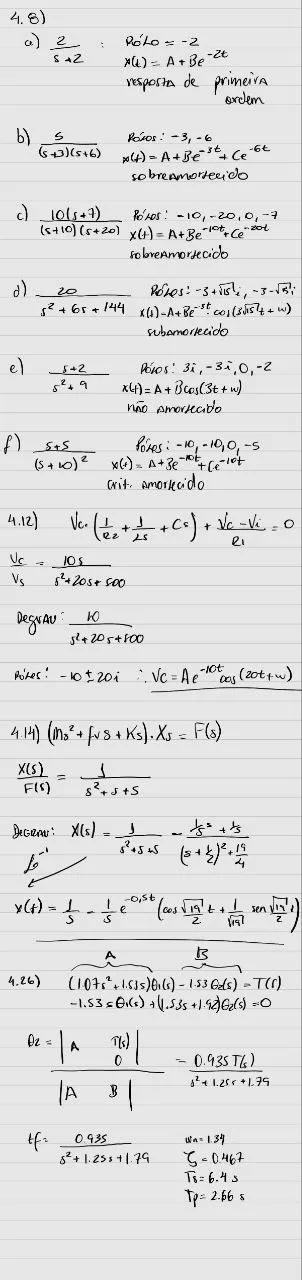 4.8)
a) 2/(s+2) : Pólo = -2
x(t) = A + Be^-2t
resposta de primeira
ordem
b) 5/((s+3)(s+6)) Pólos: -3, -6
x(t) = A + Be^-3t + Ce^-6t
sobreamortecido
c) 10(s+7)/((s+10)(s+20)) Pólos: -10, -20, 0, -7
x(t) = A + Be^-10t + Ce^-20t
sobreamortecido
d) 20/(s²+6s+144) Pólos: -3+√15 i, -3-√15 i
x(t) = A + Be^-3t cos(3√15 t + w)
subamortecido
e) (s+2)/(s²+9) Pólos: 3i, -3i, 0, -2
x(t) = A + Bcos(3t+w)
não amortecido
f) (s+5)/(s+10)² Pólos: -10, -10, 0, -5
x(t) = A + Be^-10t + Ce^-10t
Crit. amortecido
4.12) Vc. (1/R2 + 1/Ls + Cs) + (Vc - Vi)/R1 = 0
Vc/Vs = 10s/(s²+20s+500)
Degrau: 10/(s²+20s+500)
Pólos: -10 ± 20i ∴ Vc = Ae^-10t cos(20t+w)
4.14) (Ms² + fvs + Ks) . Xs = F(s)
X(s)/F(s) = 1/(s²+s+5)
Degrau: X(s) = 1/(s²+s+5) - (1/5 s + 1/5)/((s+1/2)² + 19/4)
L^-1
x(t) = 1/5 - 1/5 e^-0,5t (cos √19/2 t + 1/√19 sen √19/2 t)
A B
4.26) (1.07s² + 1.53s)θ1(s) - 1.53θ2(s) = T(s)
-1.53sθ1(s) + (1.53s + 1.92)θ2(s) = 0
θ2 = |A T(s) 0| / |A B| = 0.935T(s)/(s²+1.25s+1.79)
tf = 0.935/(s²+1.25s+1.79)
wn = 1.34
ζ = 0.467
Ts = 6.4 s
Tp = 2.66 s